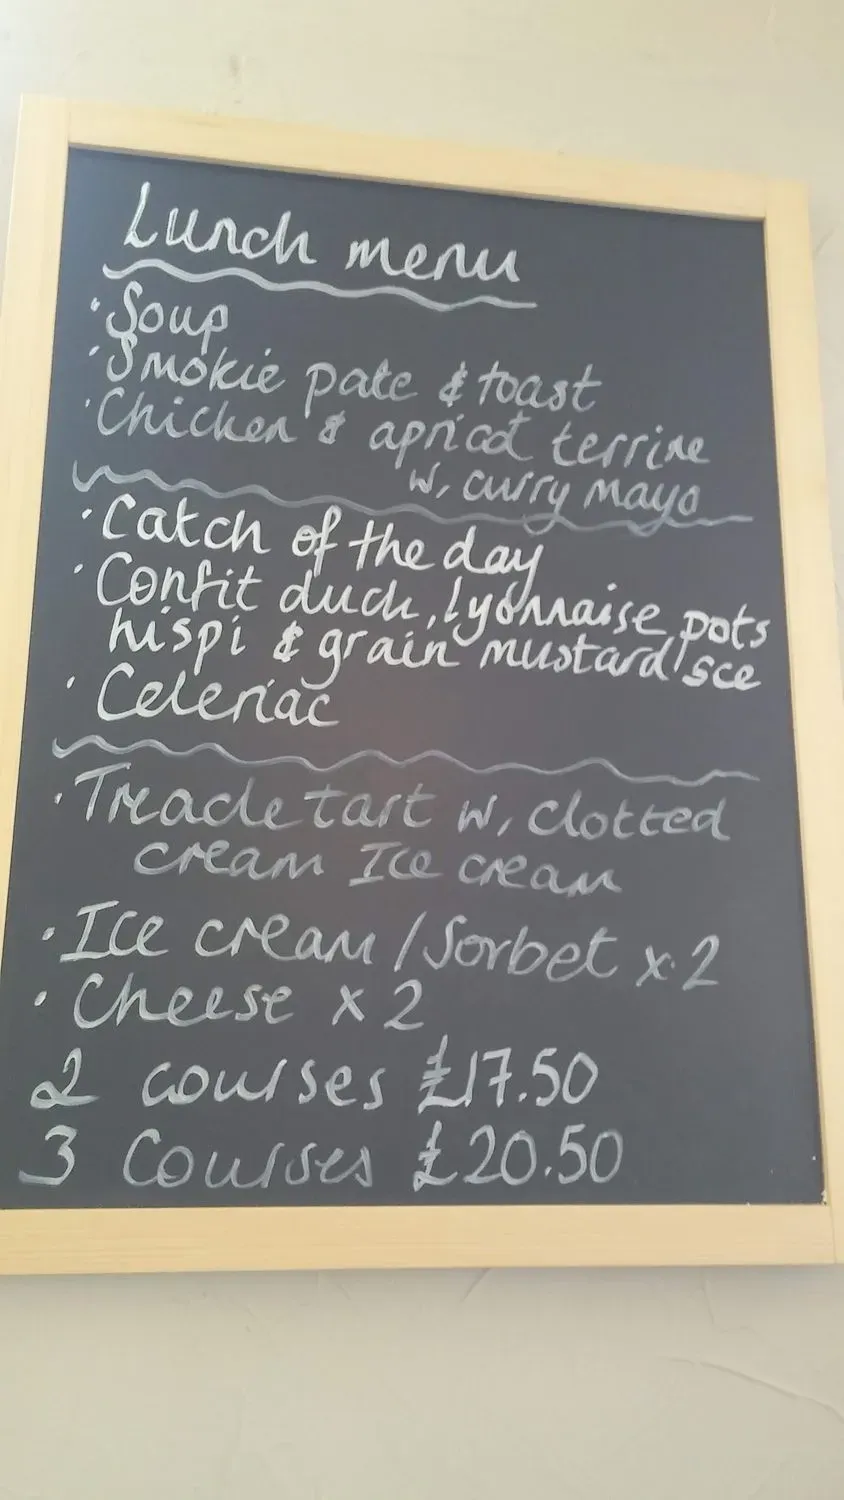 Lunch menu
· Soup
· Smokie pate & toast
· Chicken & apricot terrine
w, curry mayo
· Catch of the day
· Confit duck, lyonnaise pots
hispi & grain mustard sce
· Celeriac
· Treacle tart w, clotted
cream Ice cream
· Ice cream / Sorbet x 2
· Cheese x 2
2 courses £17.50
3 Courses £20.50